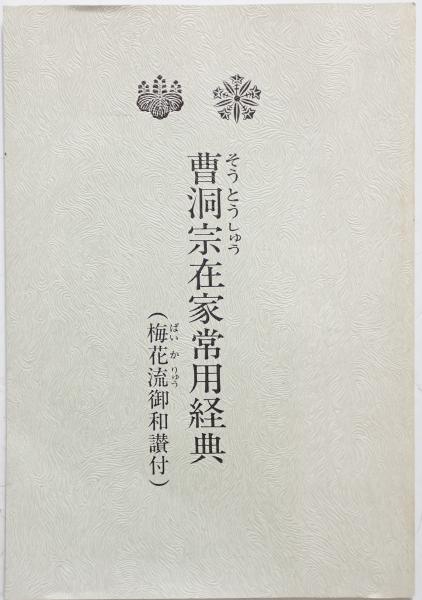 そうとうしゅう
曹洞宗在家常用経典
ばいかりゅう
(梅花流御和讃付)